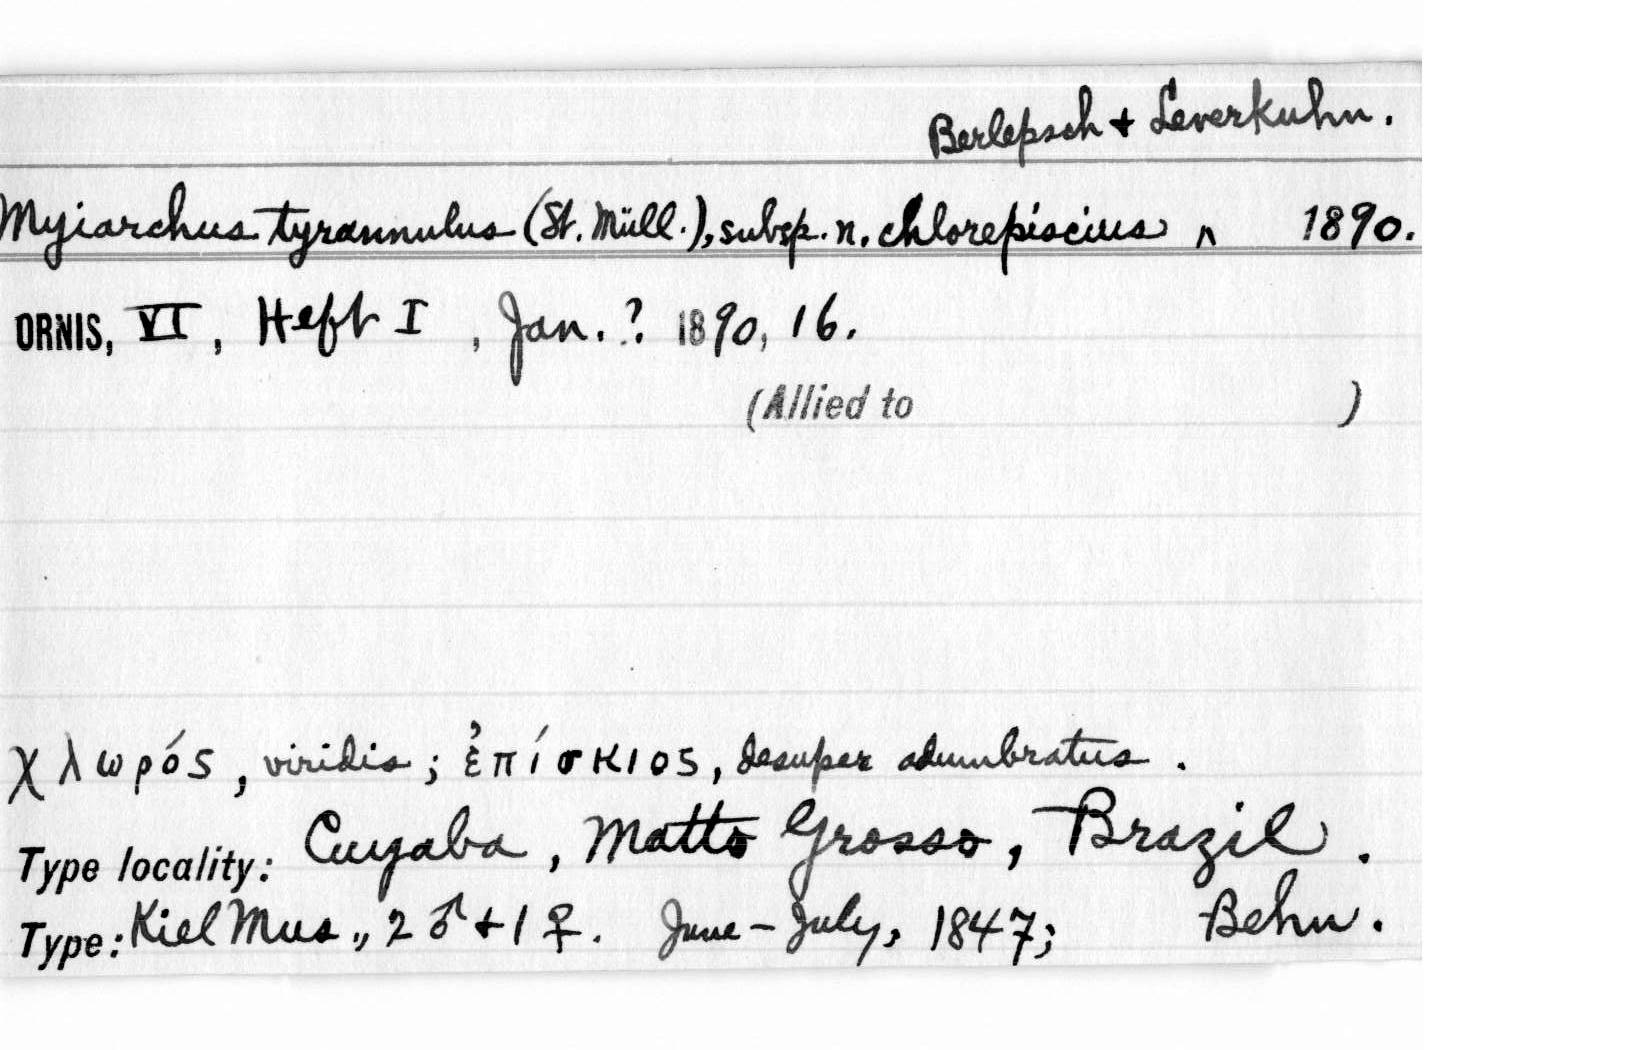 Berlepsch + Leverkuhn.
Myiarchus tyrannulus (St. Müll.), subsp. n. chlorepiscius ^ 1890.
ORNIS, VI, Heft I, Jan.? 1890, 16.
(Allied to )
χλωρός, viridis; ἐπίσκιος, desuper adumbratus.
Type locality: Cuyaba, Matto Grosso, Brazil.
Type: Kiel Mus., 2 ♂ + 1 ♀. June - July, 1847; Behn.